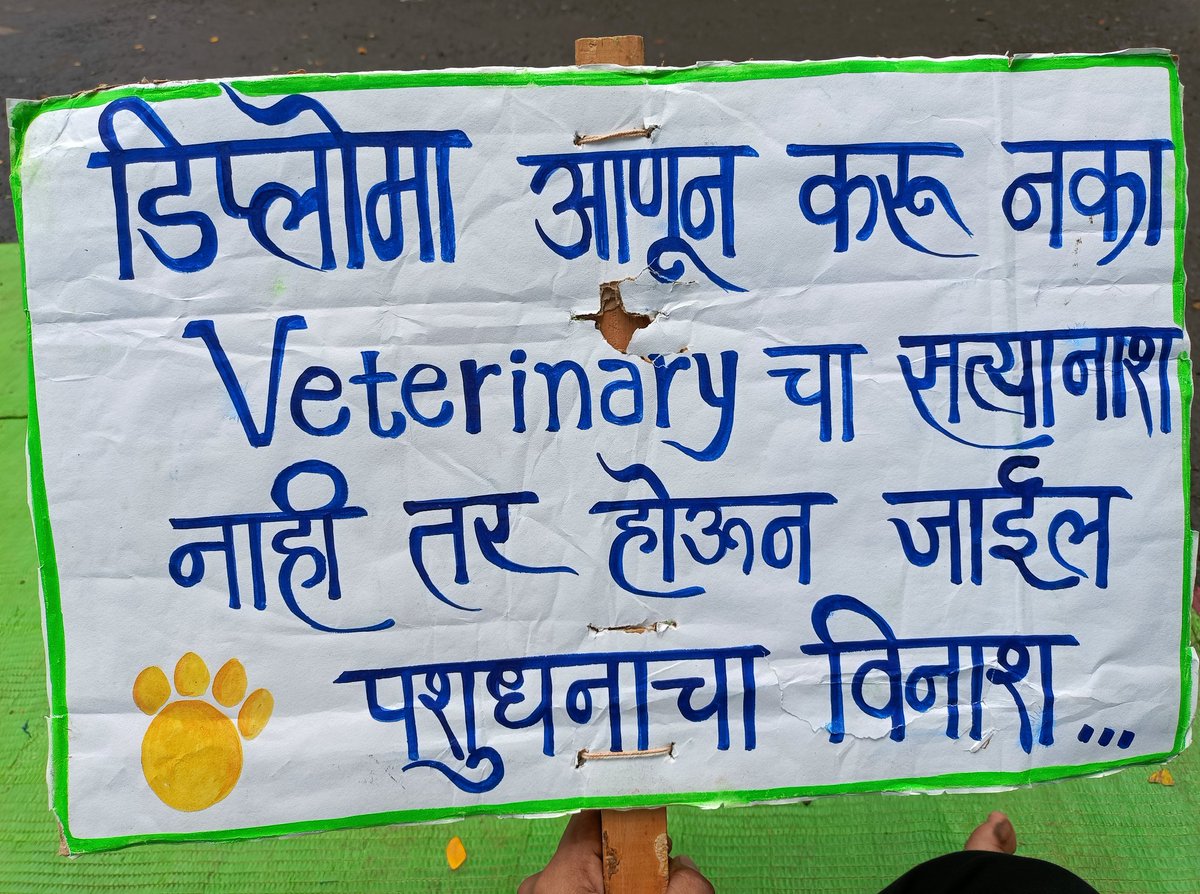 डिप्लोमा आणून करू नका
Veterinary चा सत्यानाश
नाही तर होऊन जाईल
पशुधनाचा विनाश...